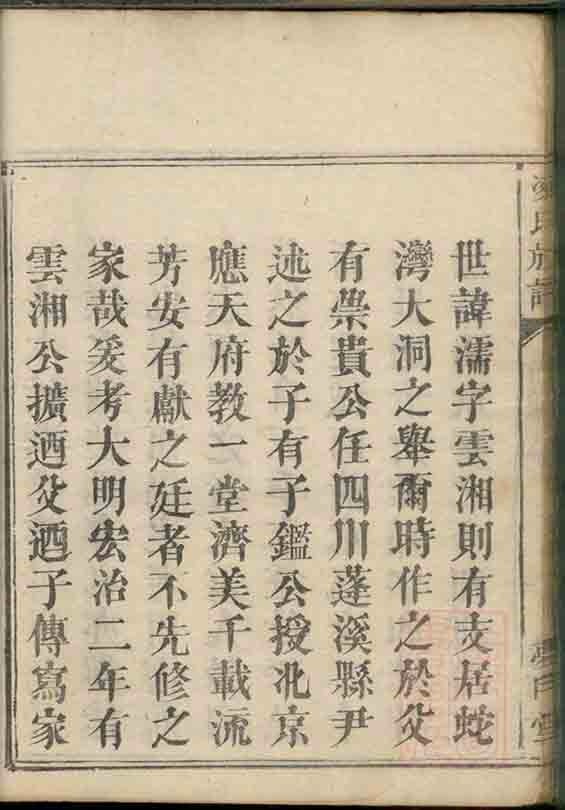 世諱濡字雲湘則有支居蛇
灣大洞之舉爾時作之於父
有崇貴公任四川蓬溪縣尹
述之於子有子鑑公授北京
應天府教一堂濟美千載流
芳安有獻之廷者不先修之
家哉爰考大明宏治二年有
雲湘公擴迺父迺子傳寫家